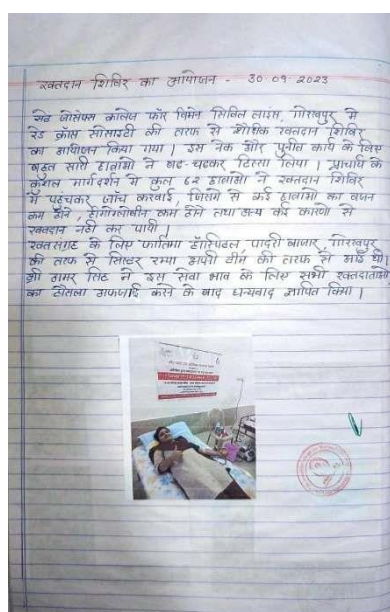 रक्तदान शिविर का आयोजन - 30.09.2023
सेंट जोसेफ्स कालेज फॉर विमेन सिविल लाइंस, गोरखपुर में
रेड क्रॉस सोसाइटी की तरफ से शैक्षिक रक्तदान शिविर
का आयोजन किया गया। इस नेक और पुनीत कार्य के लिए
बहुत सारी छात्राओं ने बढ-चढकर हिस्सा लिया। प्राचार्य के
कुशल मार्गदर्शन में कुल 62 छात्राओं ने रक्तदान शिविर
में पहुचकर जाँच करवाई, जिसमें से कई छात्राओं का वजन
कम होने, हीमोग्लोबीन कम होने तथा अन्य कई कारणों से
रक्तदान नहीं कर पायी।
रक्तसंग्रह के लिए फातिमा हॉस्पिटल पादरी बाजार, गोरखपुर
की तरफ से सिस्टर रम्या अपनी टीम की तरफ से आई थी।
श्री अमर सिंह ने इस सेवा भाव के लिए सभी रक्तदाताओं
का हौसला अफजाई करने के बाद धन्यवाद ज्ञापित किया।